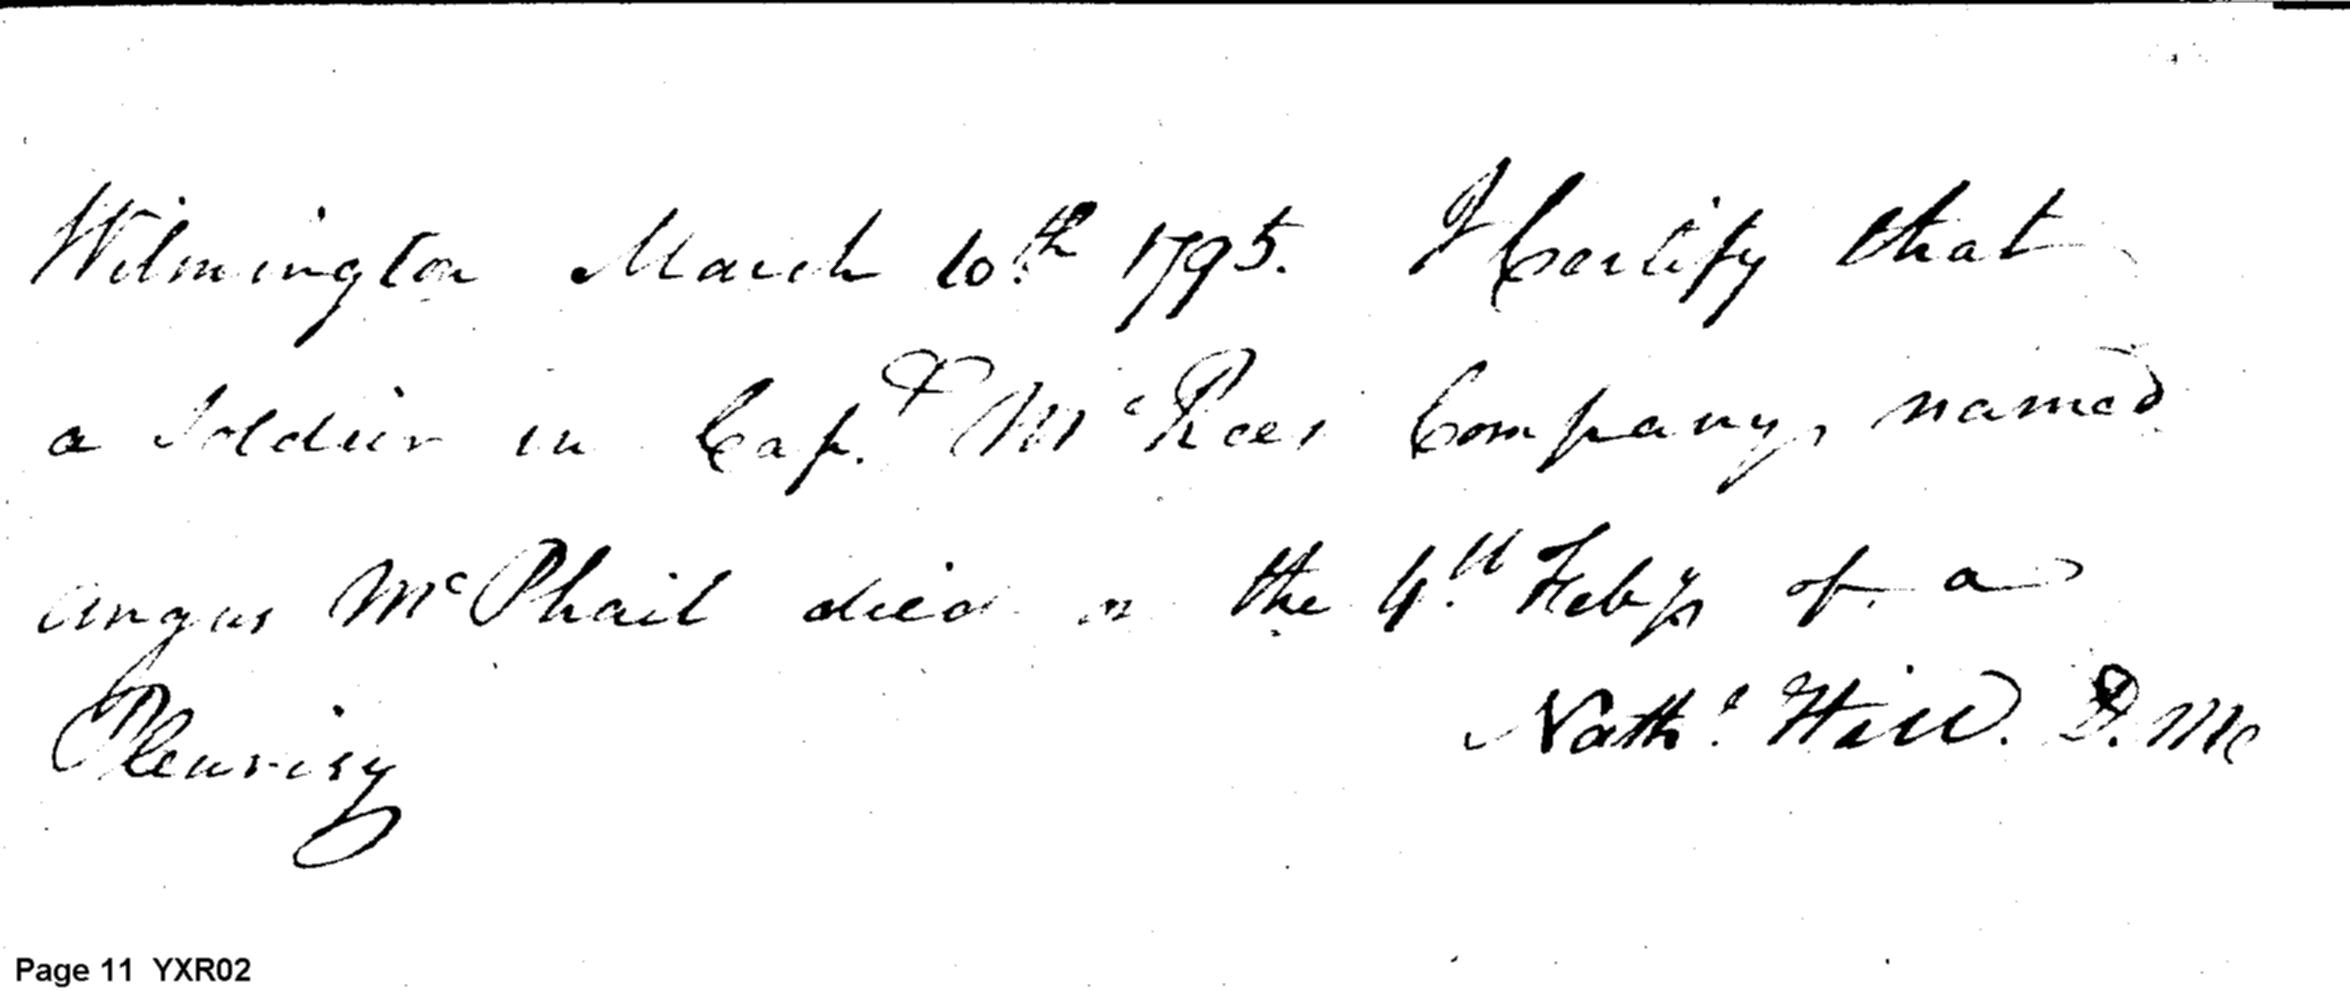 Wilmington March 10.th 1795. I Certify that
a Soldier in Cap.t McRees Company, named
Angus McPhail died on the 4.th Feby. of a
Pleurisy
Nath.l Hill. D. M
Page 11 YXR02